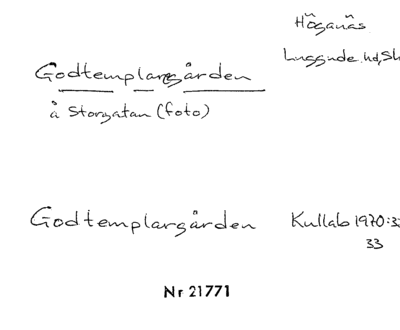 Höganäs
Luggude hd, Sk
Godtemplaregården
å Storgatan (foto)
Godtemplargården Kullab 1970:32
33
Nr 21771